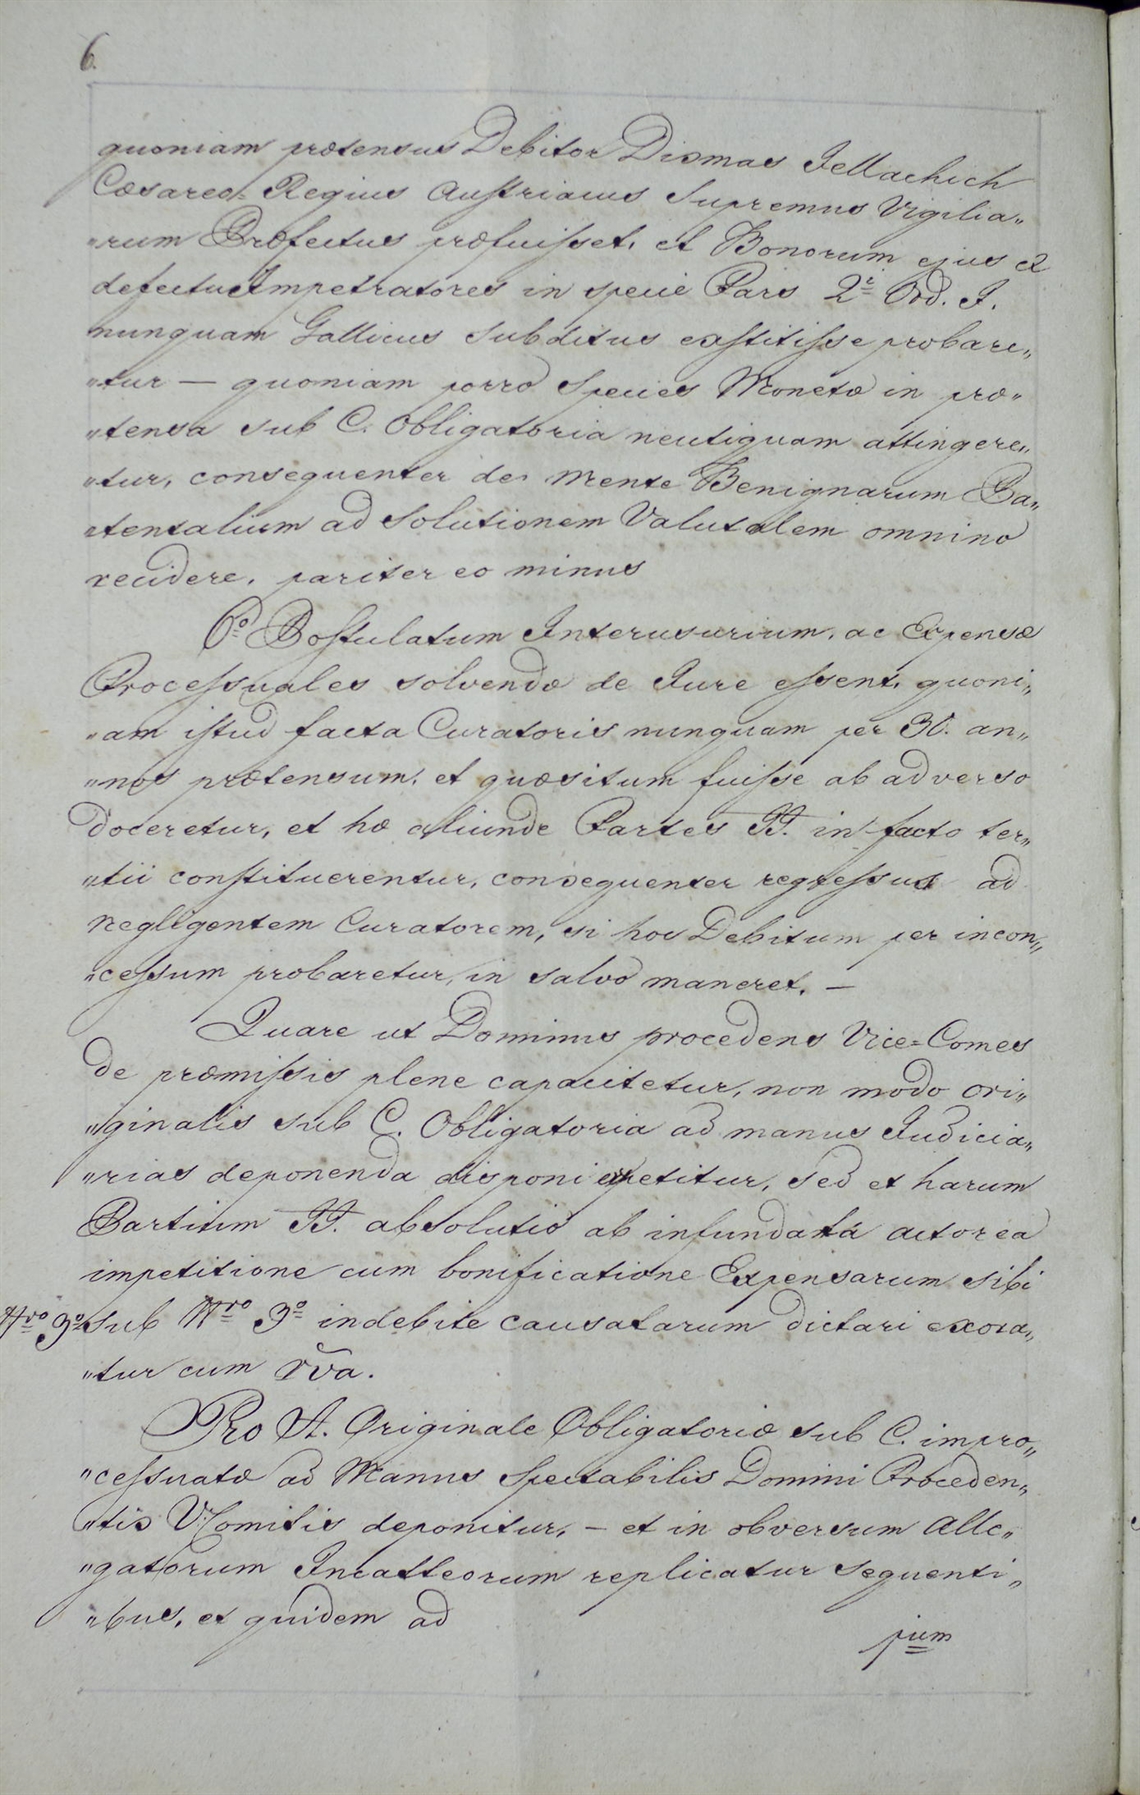 6.
quoniam prætensus Debitor Dismas Jellachich
Cæsareo=Regius Austriacus Supremus Vigilia„
„rum Præfectus præfuisset, et Bonorum ejus ex
defectu Impetratores in specie Pars 2r Ord. I.
nunquam Gallicus Subditus exstitisse probare„
„tur — quoniam porro Species Monetæ in præ„
„tensa sub C. Obligatoria neutiquam attingere„
„tur, consequenter de mente Benignarum Pa„
„tentalium ad solutionem Valutalem omnino
recidere, pariter eo minus
6o Postulatum Interusurium, ac Expensæ
Processuales solvendæ de Jure essent, quoni„
„am istud facta Curatoris nunquam per 30. an„
„nos prætensum, et quæsitum fuisse ab adverso
doceretur, et hæ aliunde Partes II. in facto ter„
„tii constituerentur, consequenter regressus ad
negligentem Curatorem, si hoc Debitum per incon„
„cessum probaretur, in salvo maneret. —
Quare ut Dominus procedens Vice=Comes
de præmissis plene capacitetur, non modo ori„
„ginalis sub C. Obligatoria ad manus Judicia„
„rias deponenda disponi expetitur, sed et harum
Partium II. absolutio ab infundata actorea
impetitione cum bonificatione Expensarum sibi
Nro 3o sub Nro 3o indebite causatarum dictari exora„
„tur cum rva.
Pro A. Originale Obligatoriæ sub C. impro„
„cessuatæ ad Manus Spectabilis Domini Proceden„
„tis V.Comitis deponitur, — et in obversum Alle„
„gatorum Incatteorum replicatur sequenti„
„bus, et quidem ad
pium